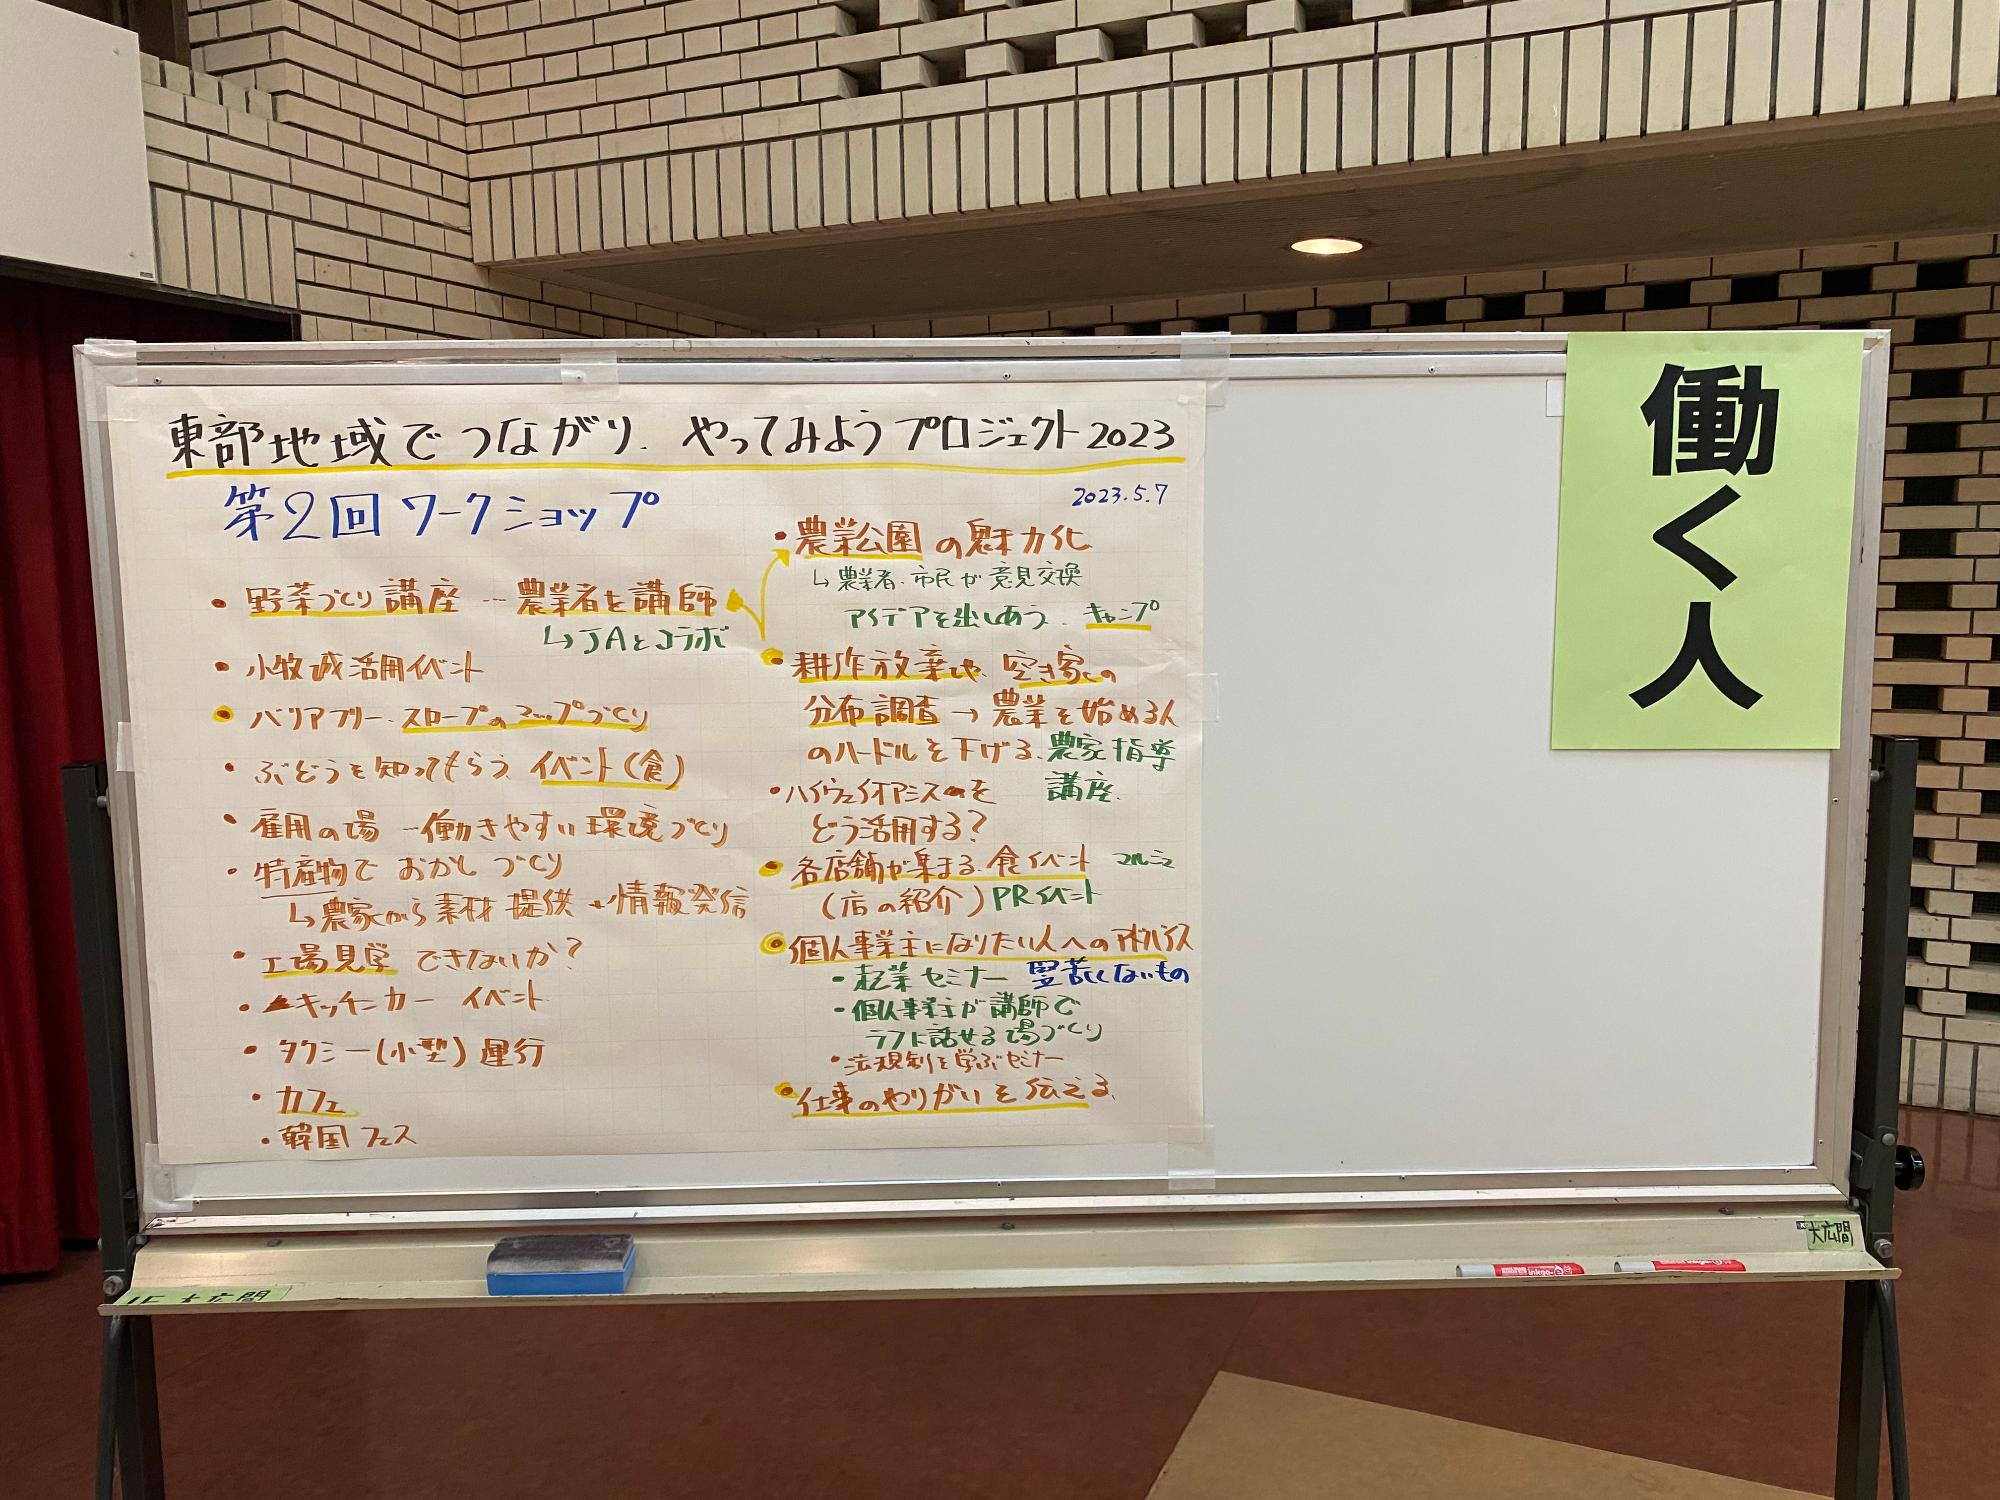 東部地域でつながり、やってみようプロジェクト2023
第2回ワークショップ
2023.5.7
・野菜づくり講座…農業者を講師
↳JAとコラボ
・小牧城活用イベント
・バリアフリー・スロープのマップづくり
・ぶどうを知ってもらう、イベント(食)
・雇用の場―働きやすい環境づくり
・特産物で おかしづくり
↳農家から素材提供
情報発信
・工場見学できないか?
・キッチンカー イベント
・タクシー(小型)運行
・カフェ
・韓国フェス
・農業公園の魅力化
↳農業者、市民が意見交換
アイデアを出しあう、キャンプ
・耕作放棄地、空き家の
分布調査→農業を始める人
のハードルを下げる、農家指導
講座、
・ハイウェイオアシスを
どう活用する?
・各店舗が集まる、食イベント マルシェ
(店の紹介)PRイベント
・個人事業主になりたい人へのアドバイス
・起業セミナー 堅苦しくないもの
・個人事業主が講師で
ラフに話せる場づくり
・法規制を学ぶセミナー
・仕事のやりがいを伝える、
働く人
大広間
1F 大広間